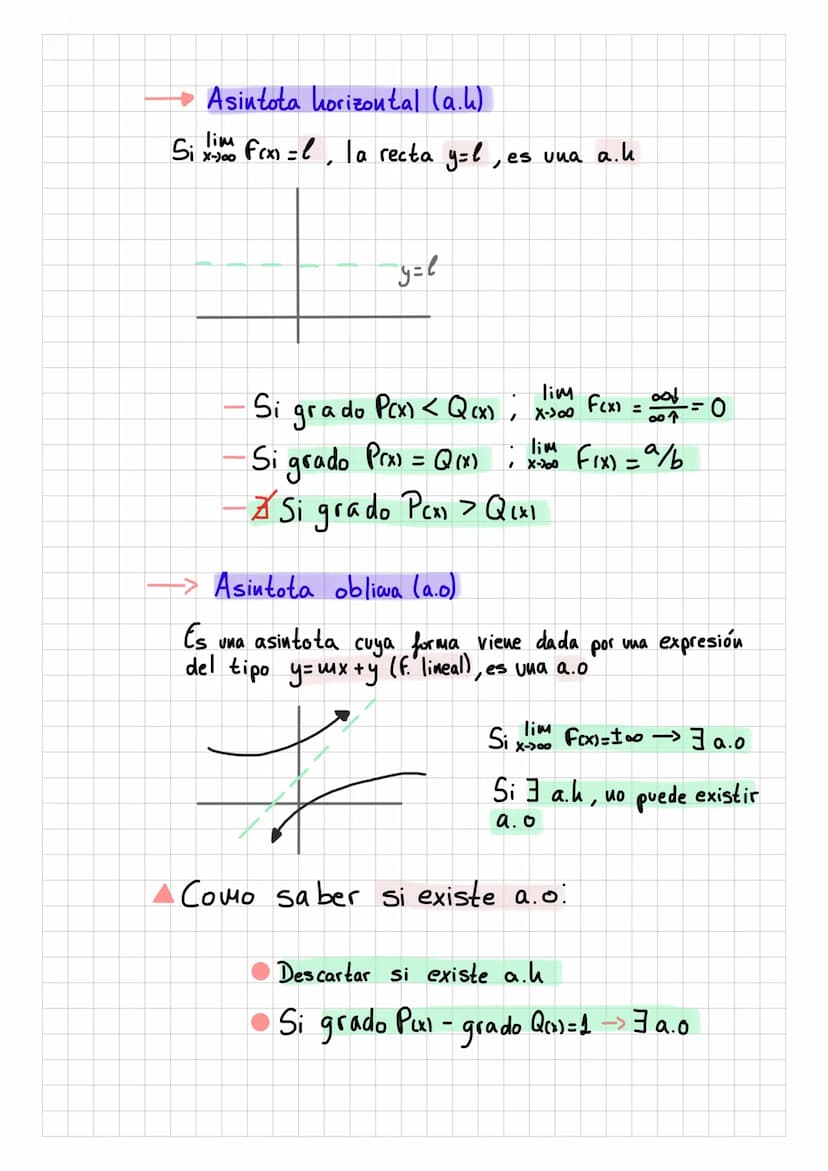 → Asintota horizontal (a.h)
Si lim x→∞ F(x) = l, la recta y=l, es una a.h
y=l
— Si grado P(x) < Q(x) ; lim x→∞ F(x) = ∞↓/∞↑ = 0
— Si grado P(x) = Q(x) ; lim x→∞ F(x) = a/b
— ∄ Si grado P(x) > Q(x)
→ Asintota oblicua (a.o)
Es una asintota cuya forma viene dada por una expresión
del tipo y=mx+y (f. lineal), es una a.o
Si lim x→∞ F(x)=±∞ → ∃ a.o
Si ∃ a.h, no puede existir
a.o
Como saber si existe a.o:
Descartar si existe a.h
Si grado P(x) - grado Q(x)=1 → ∃ a.o